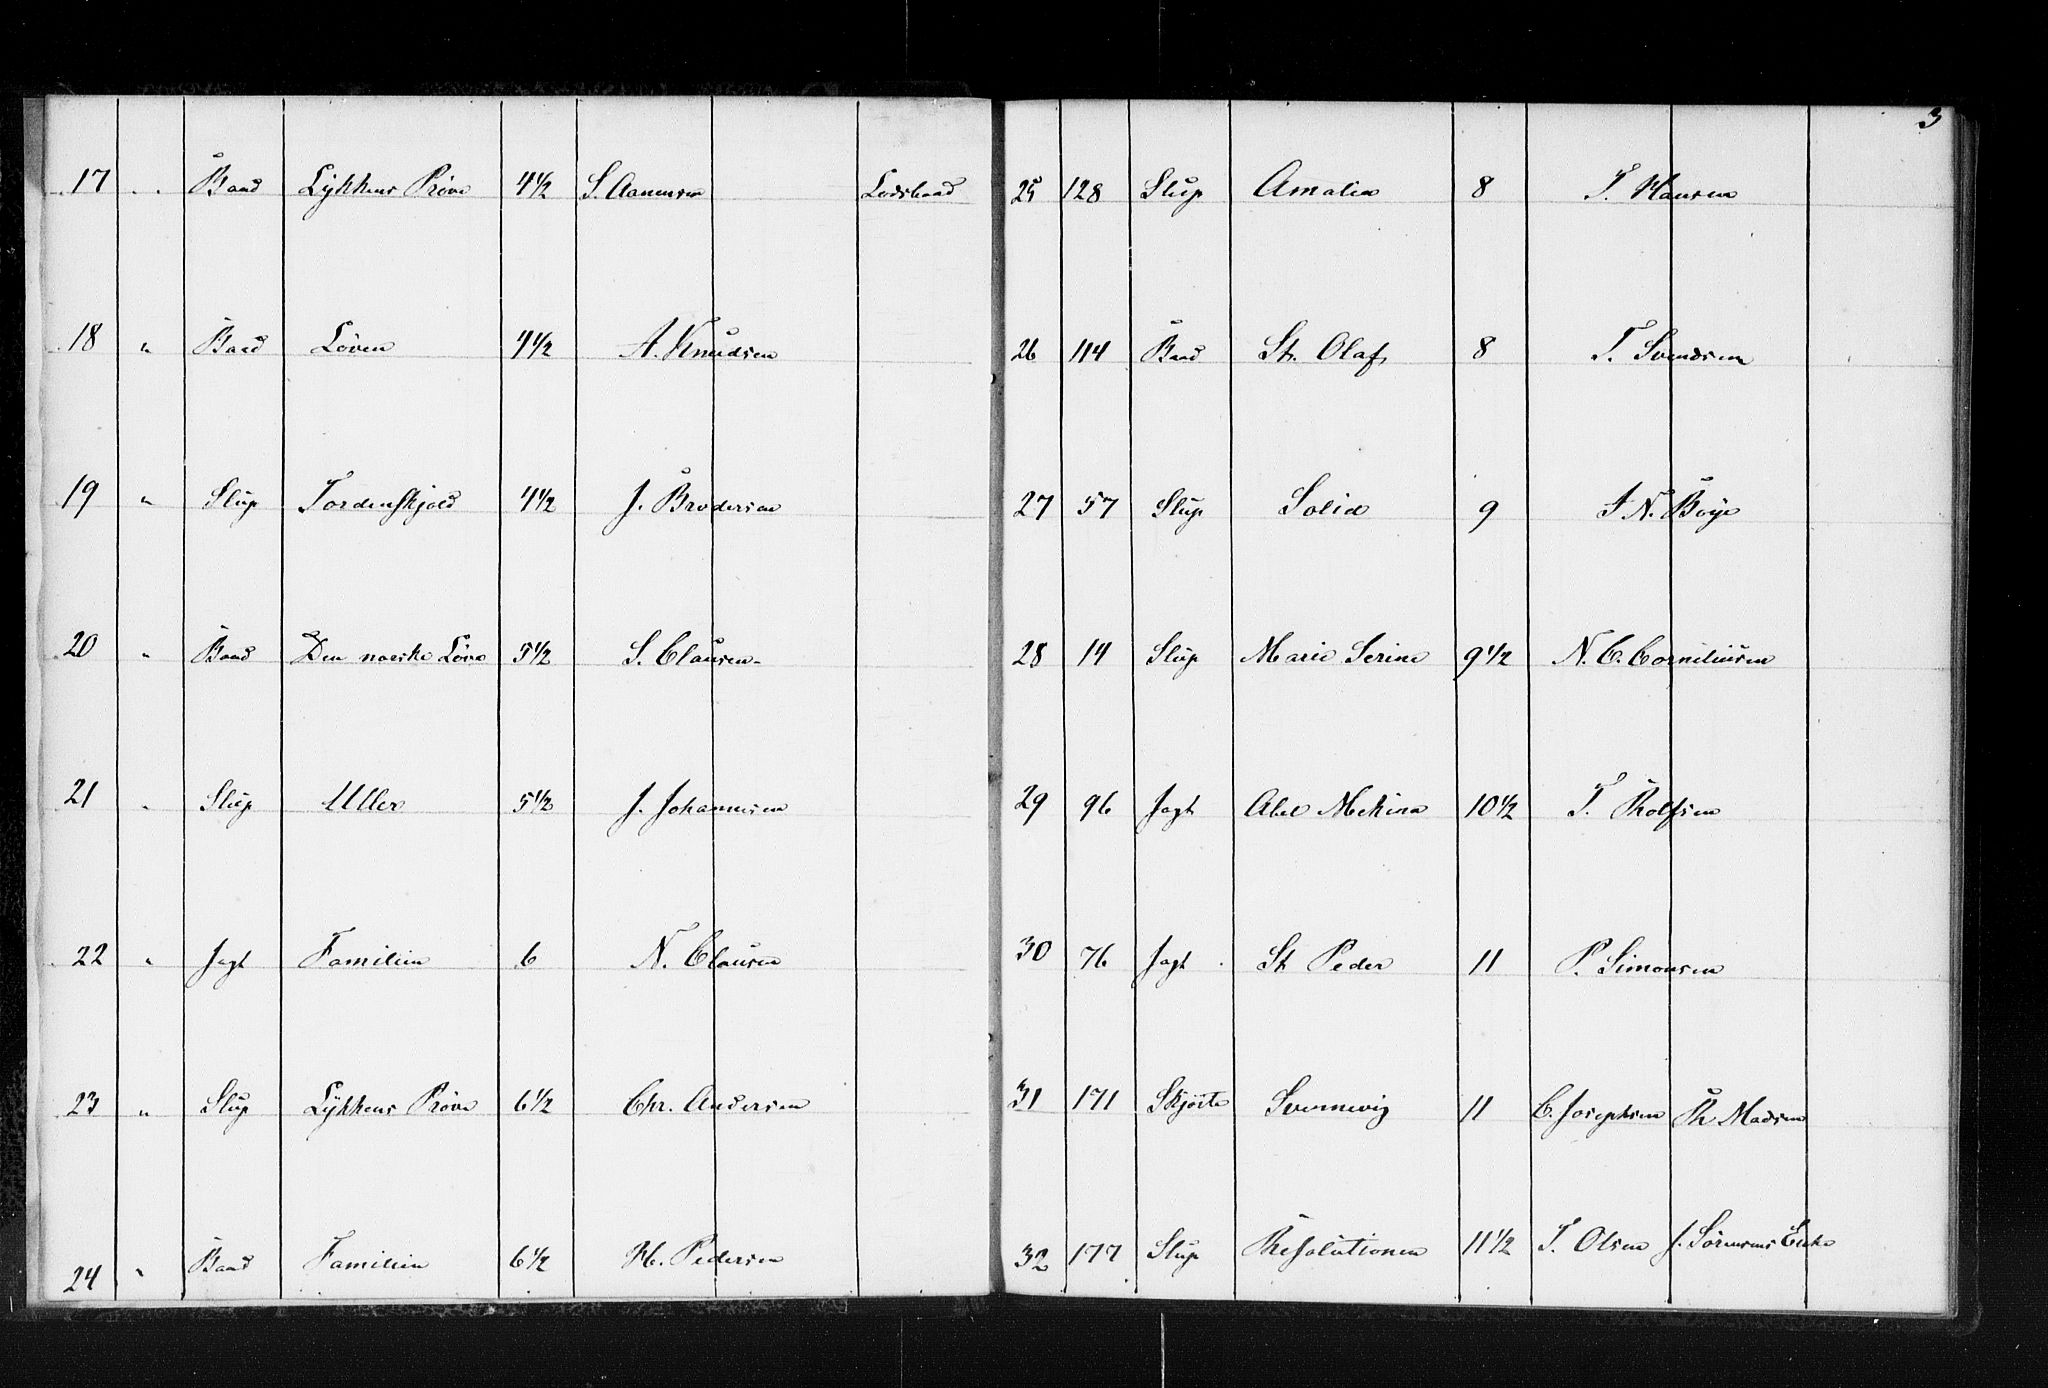 17 " Baad Lykkens Prøve 4 1/2 S. Aanensen Lodsbaad
18 " Baad Løven 4 1/2 A. Knudsen
19 " Slup Tordenskjold 4 1/2 J. Brodersen
20 " Baad Den norske Løve 5 1/2 S. Clausen
21 " Slup Uller 5 1/2 J. Johannesen
22 " Jagt Familien 6 N. Clausen
23 " Slup Lykkens Prøve 6 1/2 Chr. Andersen
24 " Baad Familien 6 1/2 H. Pedersen
3
25 128 Slup Amalia 8 T. Hansen
26 114 Baad St. Olaf 8 T. Svendsen
27 57 Slup Solid 9 N. Boye
28 14 Slup Marie Serine 9 1/2 N. C. Corneliusen
29 96 Jagt Abel Mekina 10 1/2 T. Rolfsen
30 76 Jagt St Peder 11 P. Simonsen
31 171 Skjøite Svennevig 11 C. Josephsen Th Madsen
32 177 Slup Resolutionen 11 1/2 T. Olsen J. Sørensens Enke